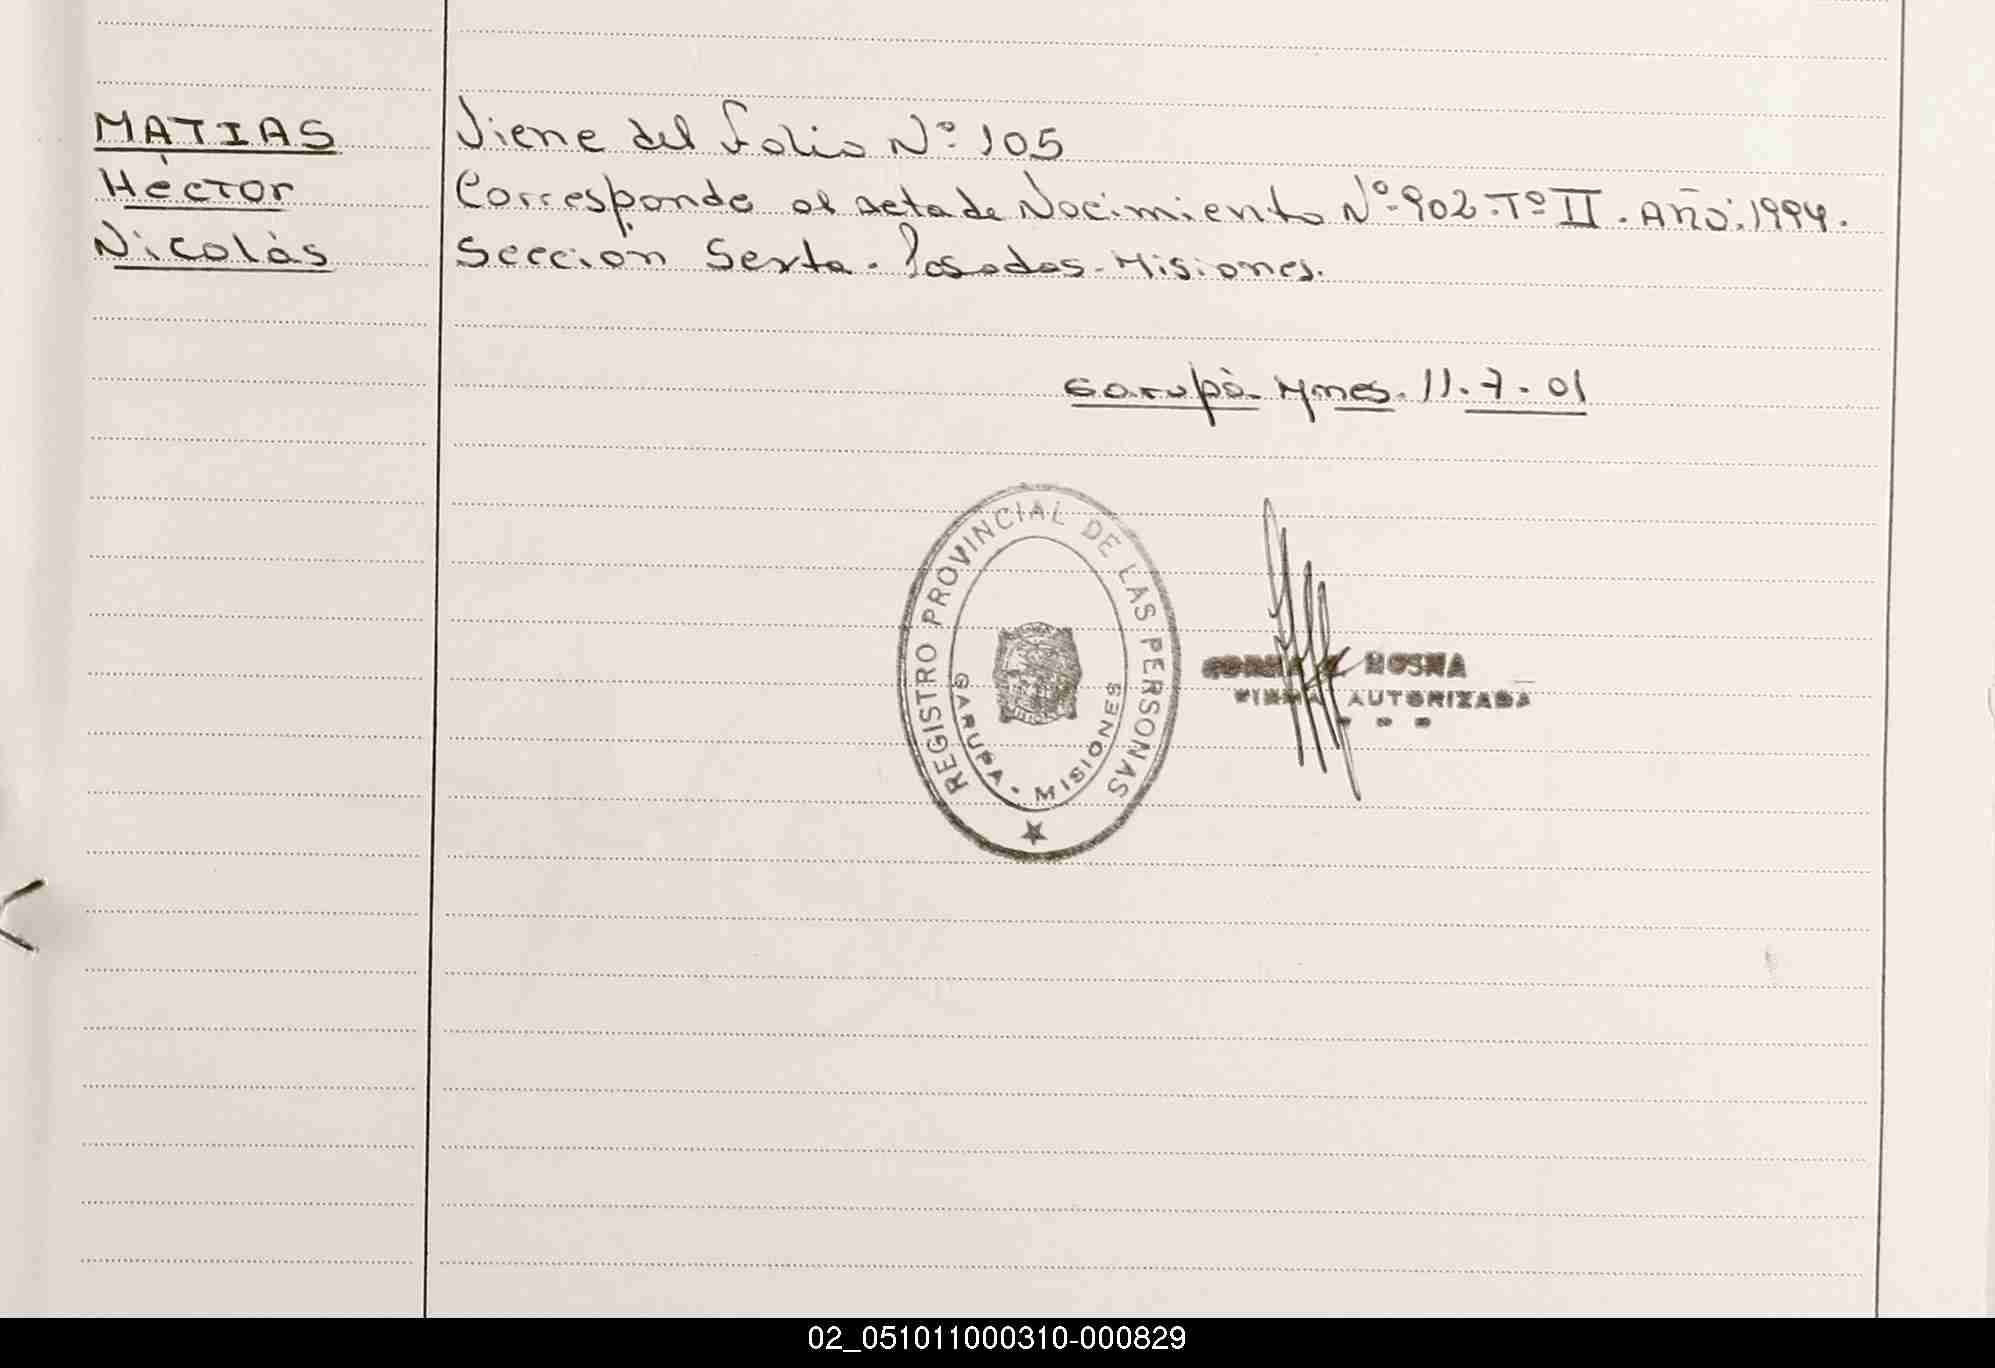 MATIAS
Héctor
Nicolás
Viene del Folio Nº 105
Corresponde al acta de Nacimiento Nº 902. Tº II. Año: 1994.
Sección Sexta. Posadas - Misiones.
Garupá Mnes. 11.7.01
REGISTRO PROVINCIAL DE LAS PERSONAS
GARUPA · MISIONES
FIRMA AUTORIZADA
02_051011000310-000829